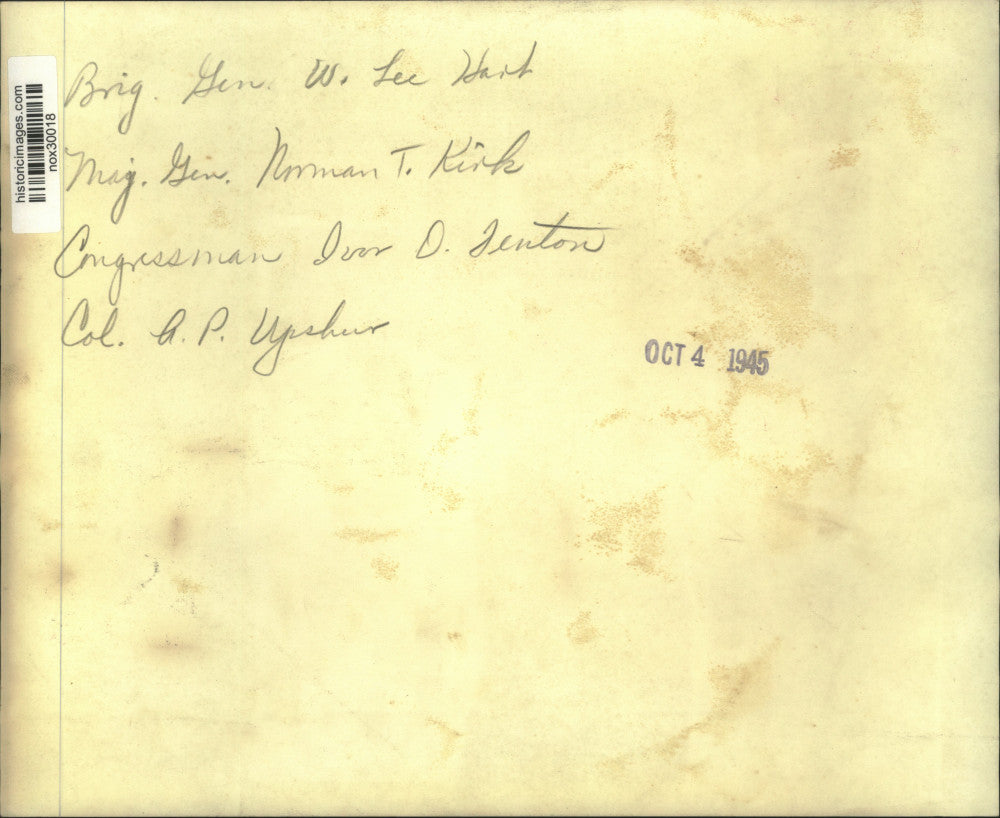 historicimages.com
nox30018
Brig. Gen. W. Lee Hart
Maj. Gen. Norman T. Kirk
Congressman Ivor D. Fenton
Col. A. P. Upshur
OCT 4 1945